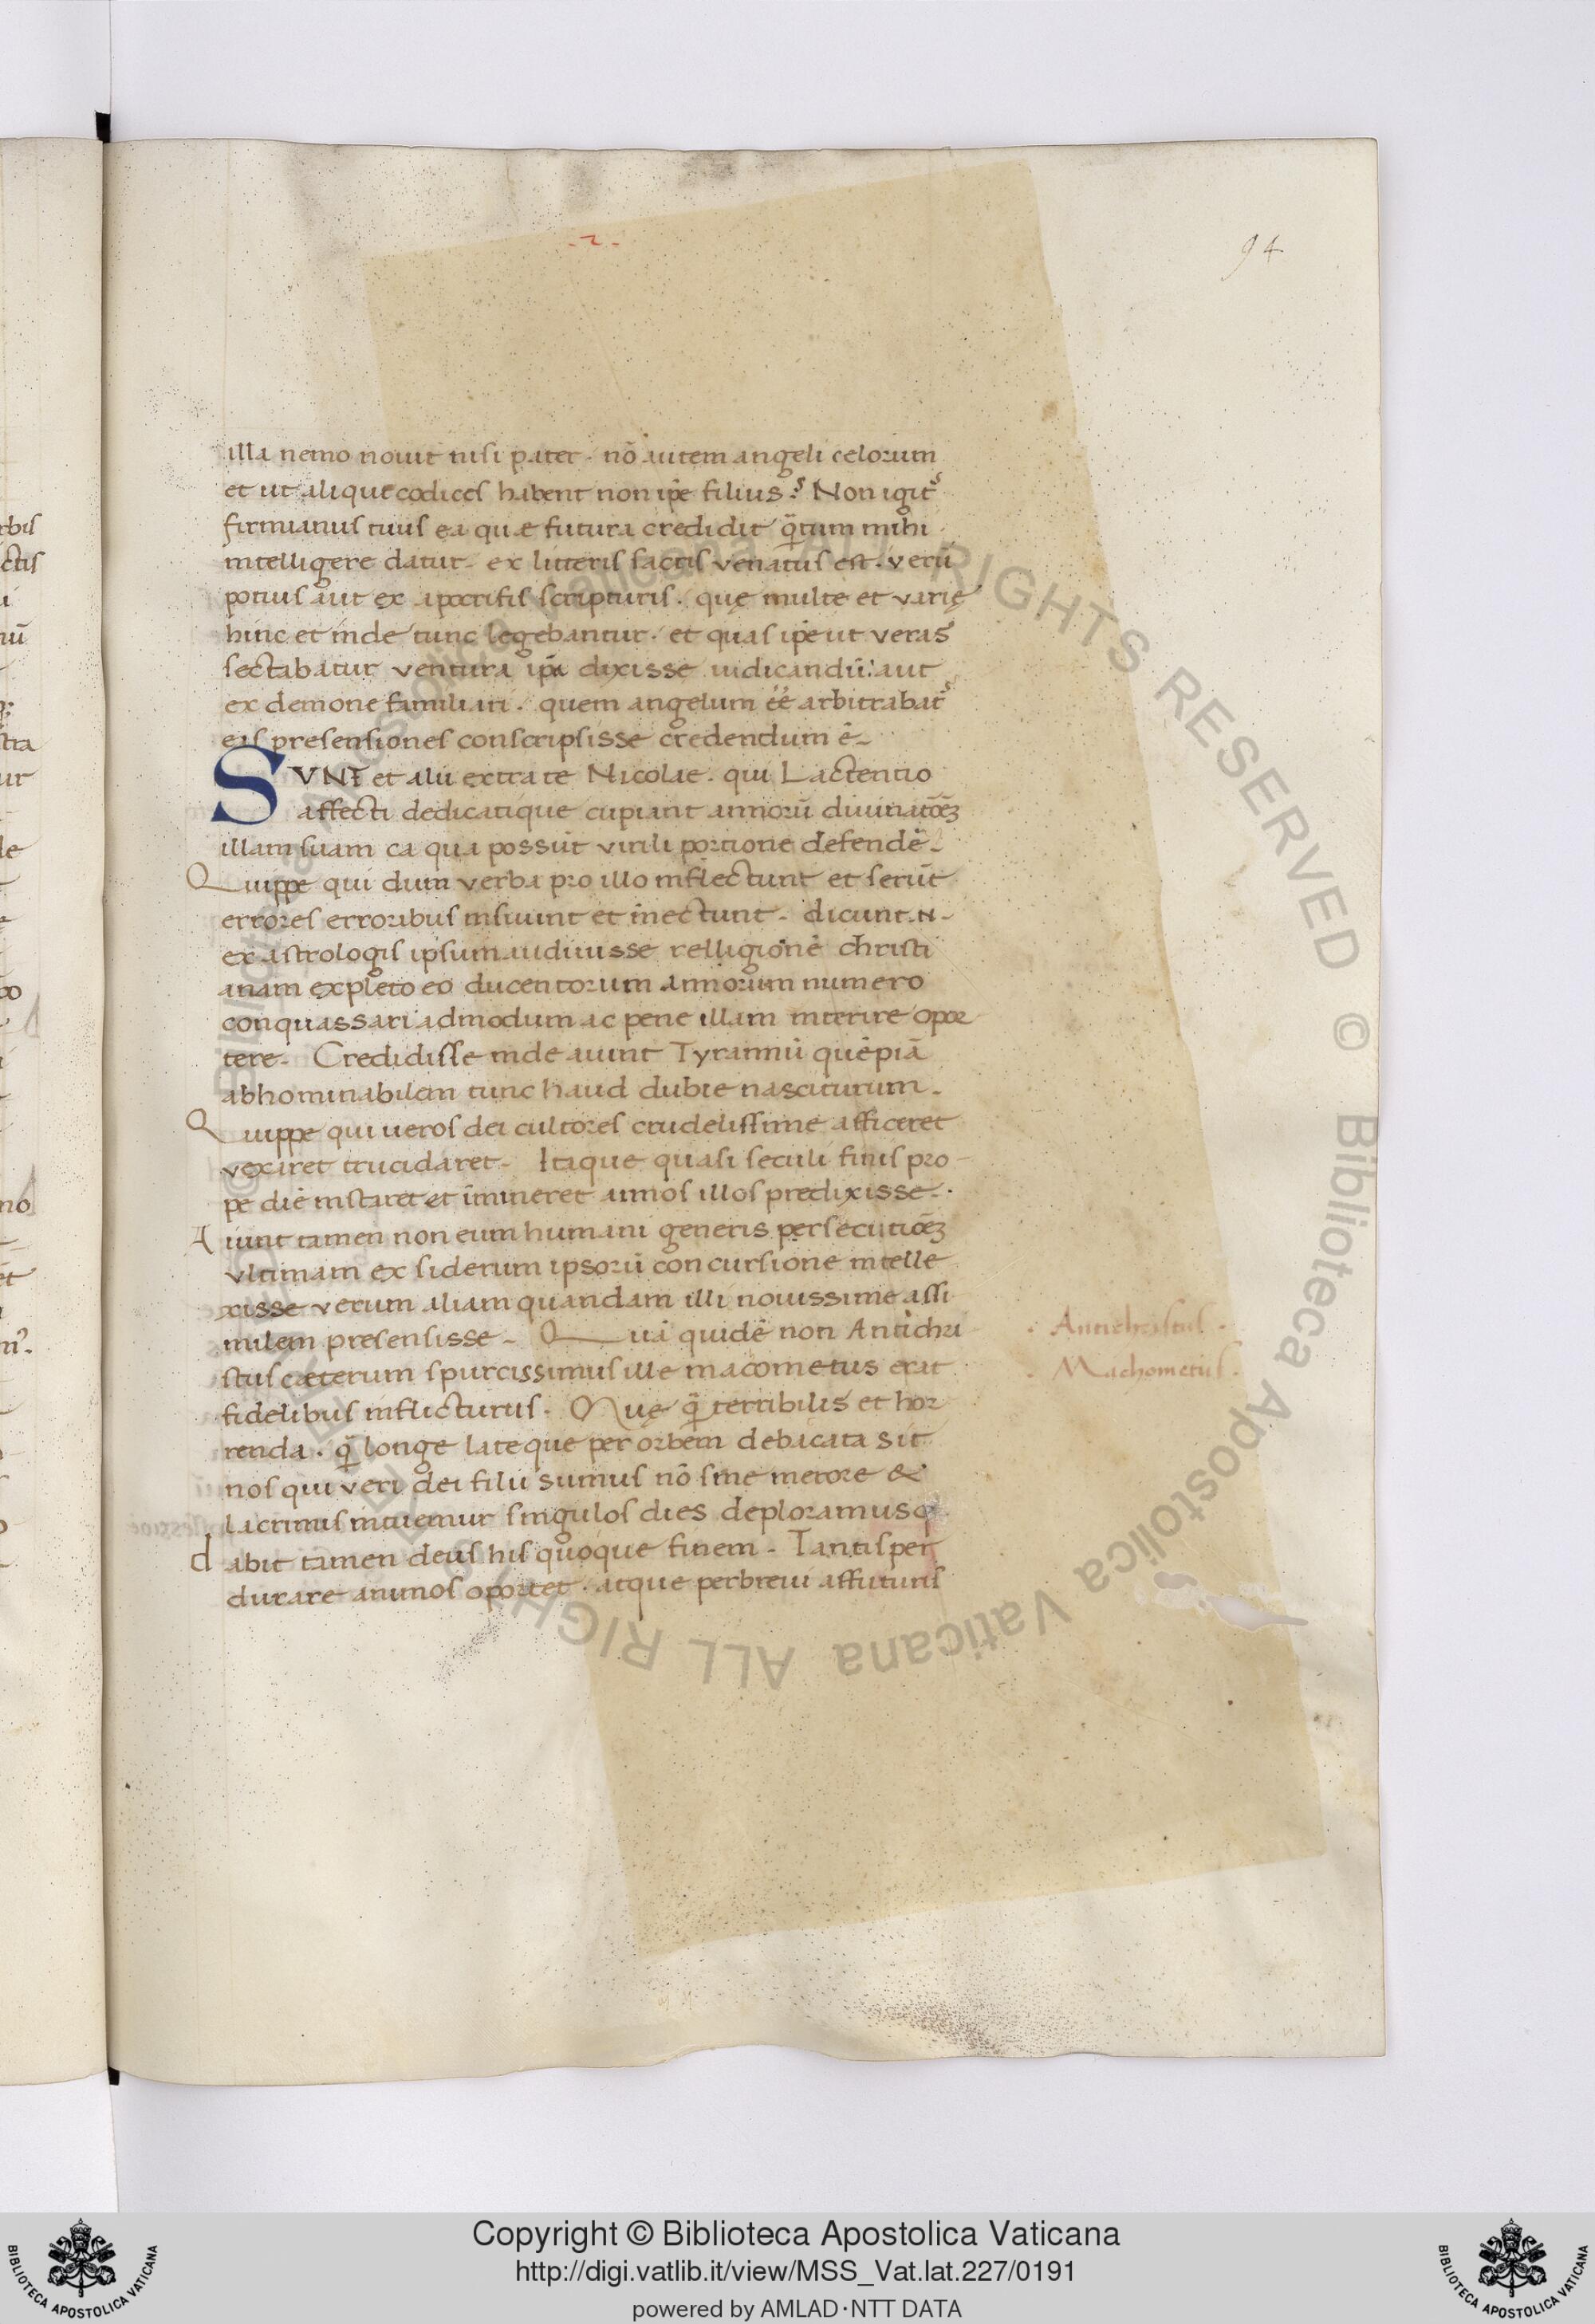 -2-
94
illa nemo nouit nisi pater. nō autem angeli celorum
et ut alique codices habent non ip̄e filius. Non igit᷑
firmianus tuus ea quæ futura credidit q̄tum mihi
intelligere datur. ex litteris sacris venatus est. verū
potius aut ex apocrifis scripturis. quę multe et varię
hinc et inde tunc legebantur. et quas ip̄e ut veras
sectabatur ventura ip̄a dixisse iudicandū: aut
ex demone familiari. quem angelum ēē arbitrabat᷑
eas presensiones conscripsisse credendum ē.
SVNT et alii extra te Nicolae. qui Lactentio
affecti dedicatique cupiant annorū diuinatōeꝫ
illam suam ea qua possūt virili portione defendē.
Quippe qui dum verba pro illo inflectunt et serūt
errores erroribus insuunt et īnectunt. dicunt .N.
ex astrologis ipsum audiuisse relligionē christi
anam expleto eo ducentorum annorum numero
conquassari admodum ac pene illam interire opor
tere. Credidisse inde aiunt Tyrannū quēpiā
abhominabilem tunc haud dubie nasciturum.
Quippe qui ueros dei cultores crudelissime afficeret
vexaret trucidaret. Itaque quasi seculi finis pro
pe diē instaret et īmineret annos illos predixisse.
Aiunt tamen non eum humani generis persecutiōeꝫ
vltimam ex siderum ipsorū concursione intelle
xisse verum aliam quandam illi nouissime assi
milem presensisse. Quā quidē non Antichri
stus cæterum spurcissimus ille macometus erat
fidelibus inflicturus. Quę q̄ terribilis et hor
renda. q̄ longe lateque per orbem debacata sit
nos qui veri dei filii sumus nō sine merore &
lacrimis intuemur singulos dies deploramusq
dabit tamen deus his quoque finem. Tantisper
durare animos oportet. atque perbreui affuturis
. Antichristus .
. Machometus .
rbis
ctis
nū
stra
ur
le
no
et
Copyright © Biblioteca Apostolica Vaticana
http://digi.vatlib.it/view/MSS_Vat.lat.227/0191
powered by AMLAD·NTT DATA
BIBLIOTECA APOSTOLICA VATICANA
BIBLIOTECA APOSTOLICA VATICANA
© Biblioteca Apostolica Vaticana ALL RIGHTS RESERVED